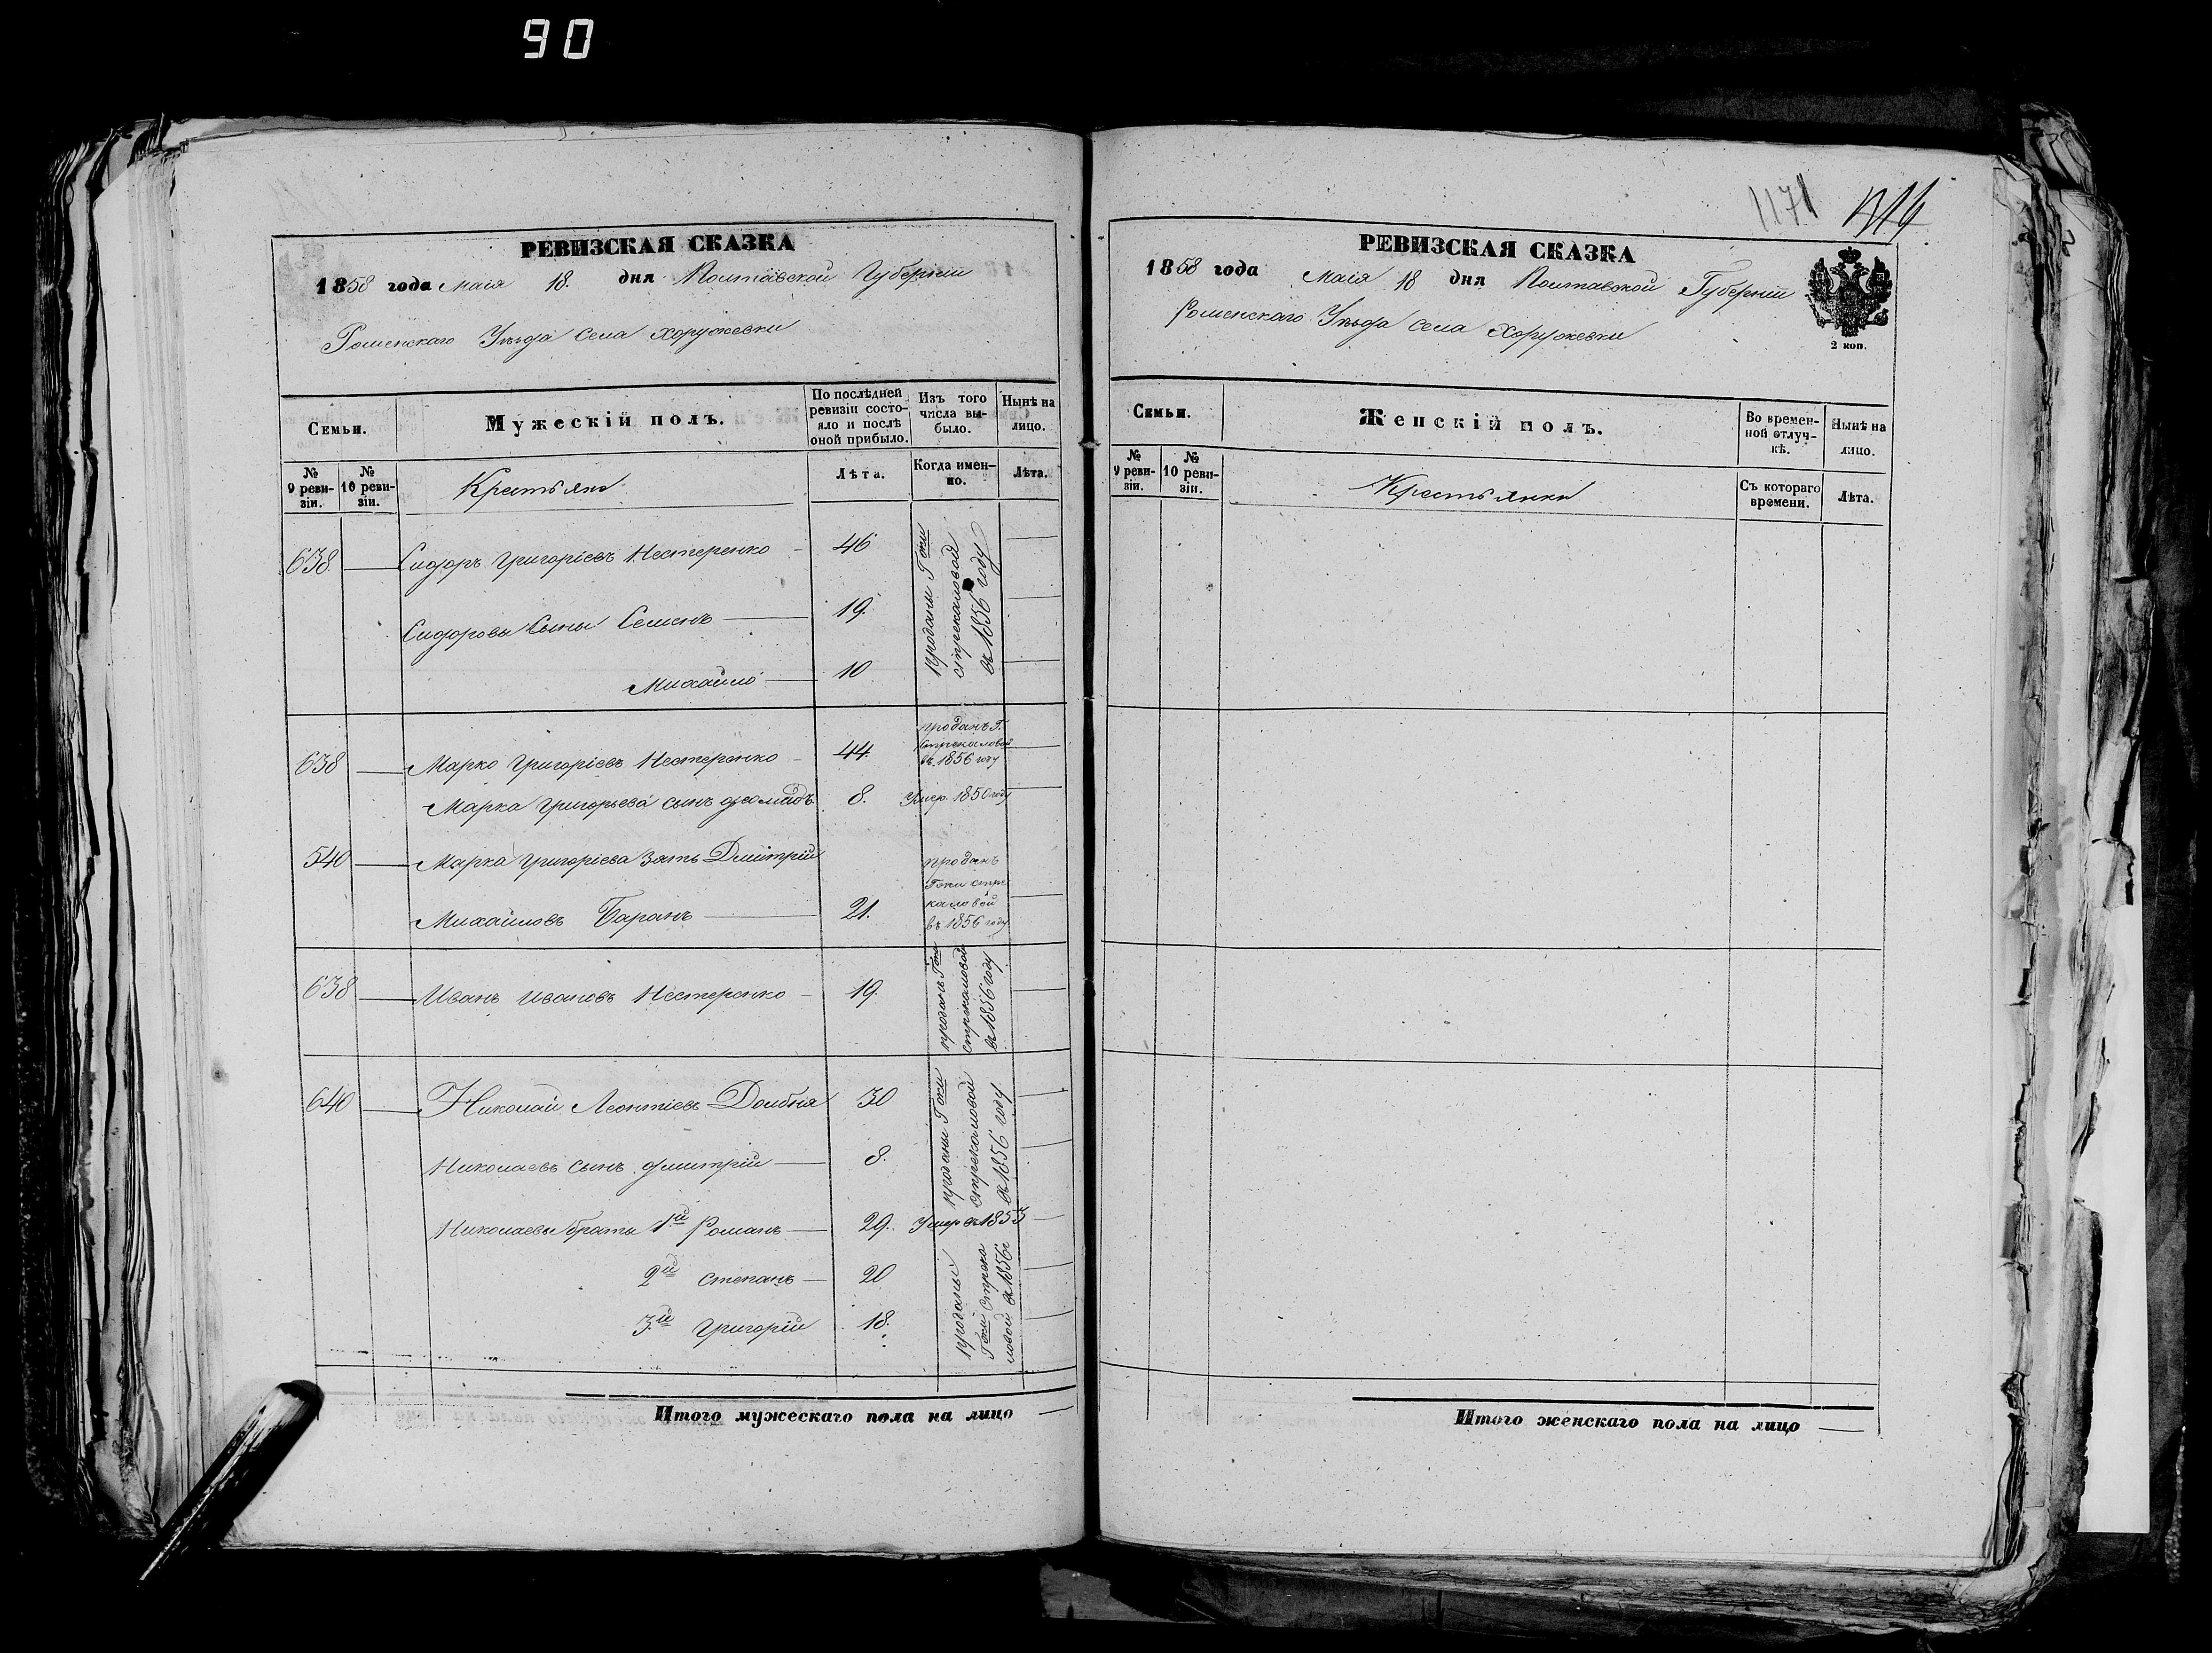 90
РЕВИЗСКАЯ СКАЗКА
1858 года маія 18. дня Полтавской Губерніи
Роменскаго Уѣзда села Хоружевки
Семьи.
Мужескій полъ.
По послѣдней ревизіи состояло и послѣ оной прибыло.
Изъ того числа выбыло.
Нынѣ на лицо.
№ 9 ревизіи.
№ 10 ревизіи.
Крестьяне
Лѣта.
Когда именно.
Лѣта.
638 Сидоръ Григоріевъ Нестеренко 46
Сидоровы Сыны Семенъ 19.
Михайло 10
проданы Гжи
Стрекаловой
въ 1856 году
638 Марко Григоріевъ Нестеренко 44.
проданъ Г.
Стрекаловой
въ 1856 году
Марка Григорьева сынъ 8. Умер. 1850 году
540 Марка Григоріева зять Дмитрій
Михайловъ Баранъ 21.
проданъ
Гжи Стре
каловой
въ 1856 году
638 Иванъ Ивановъ Нестеренко 19.
проданъ Гжи
Стрекаловой
въ 1856 году
640 Николай Леонтіевъ Долбня 30
Николаевъ сынъ Дмитрій 8.
проданы Гжи
Стрекаловой
въ 1856 году
Николаевы братья 1й Романъ 29. Умер въ 1855
2й Степанъ 20
3й Григорій 18.
проданы
Гжи Стрека
ловой въ 1856г
Итого мужескаго пола на лицо —
1171
РЕВИЗСКАЯ СКАЗКА
1858 года Маія 18 дня Полтавской Губерніи
Роменскаго Уѣзда села Хоружевки
2 коп.
Семьи.
Женскій полъ.
Во временной отлучкѣ.
Нынѣ на лицо.
№ 9 ревизіи.
№ 10 ревизіи.
Крестьянки
Съ котораго времени.
Лѣта.
Итого женскаго пола на лицо —